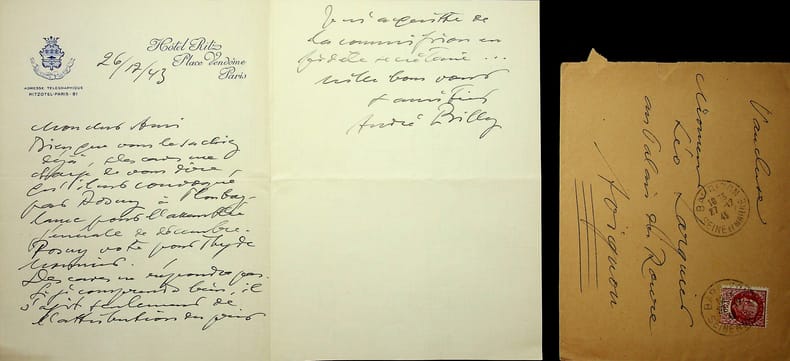 Hôtel Ritz
Place Vendôme
Paris
ADRESSE TELEGRAPHIQUE
RITZOTEL-PARIS-81
26/12/43
Mon cher Ami
Bien que vous le sachiez
déjà, Descaves me
charge de vous dire
qu'il nous convoque
pour
pour l'assemblée
annuelle de décembre.
Rosny vote pour Thyde
Monnier.
Descaves ne répondra pas.
Si je comprends bien, il
s'agit seulement de
l'attribution du prix
Je m'acquitte de
la commission en
fidèle secrétaire ...
Mille bons vœux
& amitiés
André Billy
Monsieur
Léo Larguier
au Palais du Roure
Avignon
Vaucluse
BARBIZON
27-12
43
SEINE ET MARNE
BARBIZON
SEINE